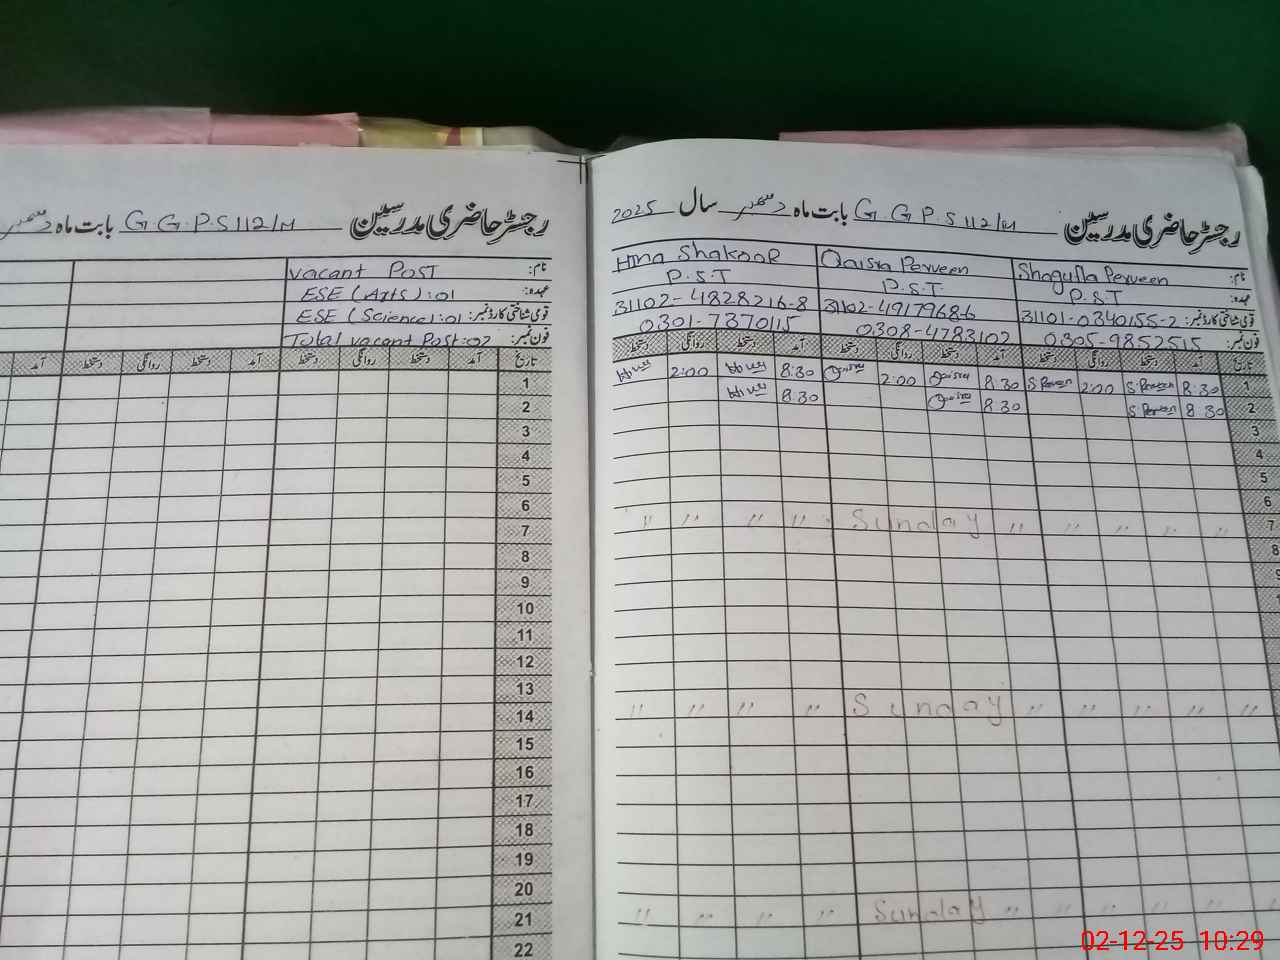 رجسٹر حاضری مدرسین G.G.P.S 112/M بابت ماہ دسمبر
Vacant Post نام:
ESE (Arts):01 عہدہ:
ESE (Science):01 قومی شناختی کارڈ نمبر:
Total vacant Post:02 فون نمبر:
تاریخ آمد دستخط روانگی دستخط آمد دستخط روانگی دستخط آمد
1
2
3
4
5
6
7
8
9
10
11
12
13
14
15
16
17
18
19
20
21
22
رجسٹر حاضری مدرسین G.G.P.S 112/M بابت ماہ دسمبر سال 2025
نام: Shagufta Perveen Qaisra Perveen Hina Shakoor
عہدہ: P.S.T P.S.T. P.S.T
قومی شناختی کارڈ نمبر: 31101-0340155-2 31102-4917968-6 31102-4828216-8
فون نمبر: 0305-9852515 0308-4783102 0301-7370115
تاریخ آمد دستخط روانگی دستخط آمد دستخط روانگی دستخط آمد دستخط روانگی دستخط
1 8:30 S.Perveen 2:00 S.Perveen 8:30 Qaisra 2:00 Qaisra 8:30 Hina 2:00 Hina
2 8:30 S.Perveen 8:30 Qaisra 8:30 Hina
3
4
5
6
7 " " " " " Sunday " " " "
8
9
" " " " " Sunday " " " "
" " " " " Sunday " " " "
02-12-25 10:29